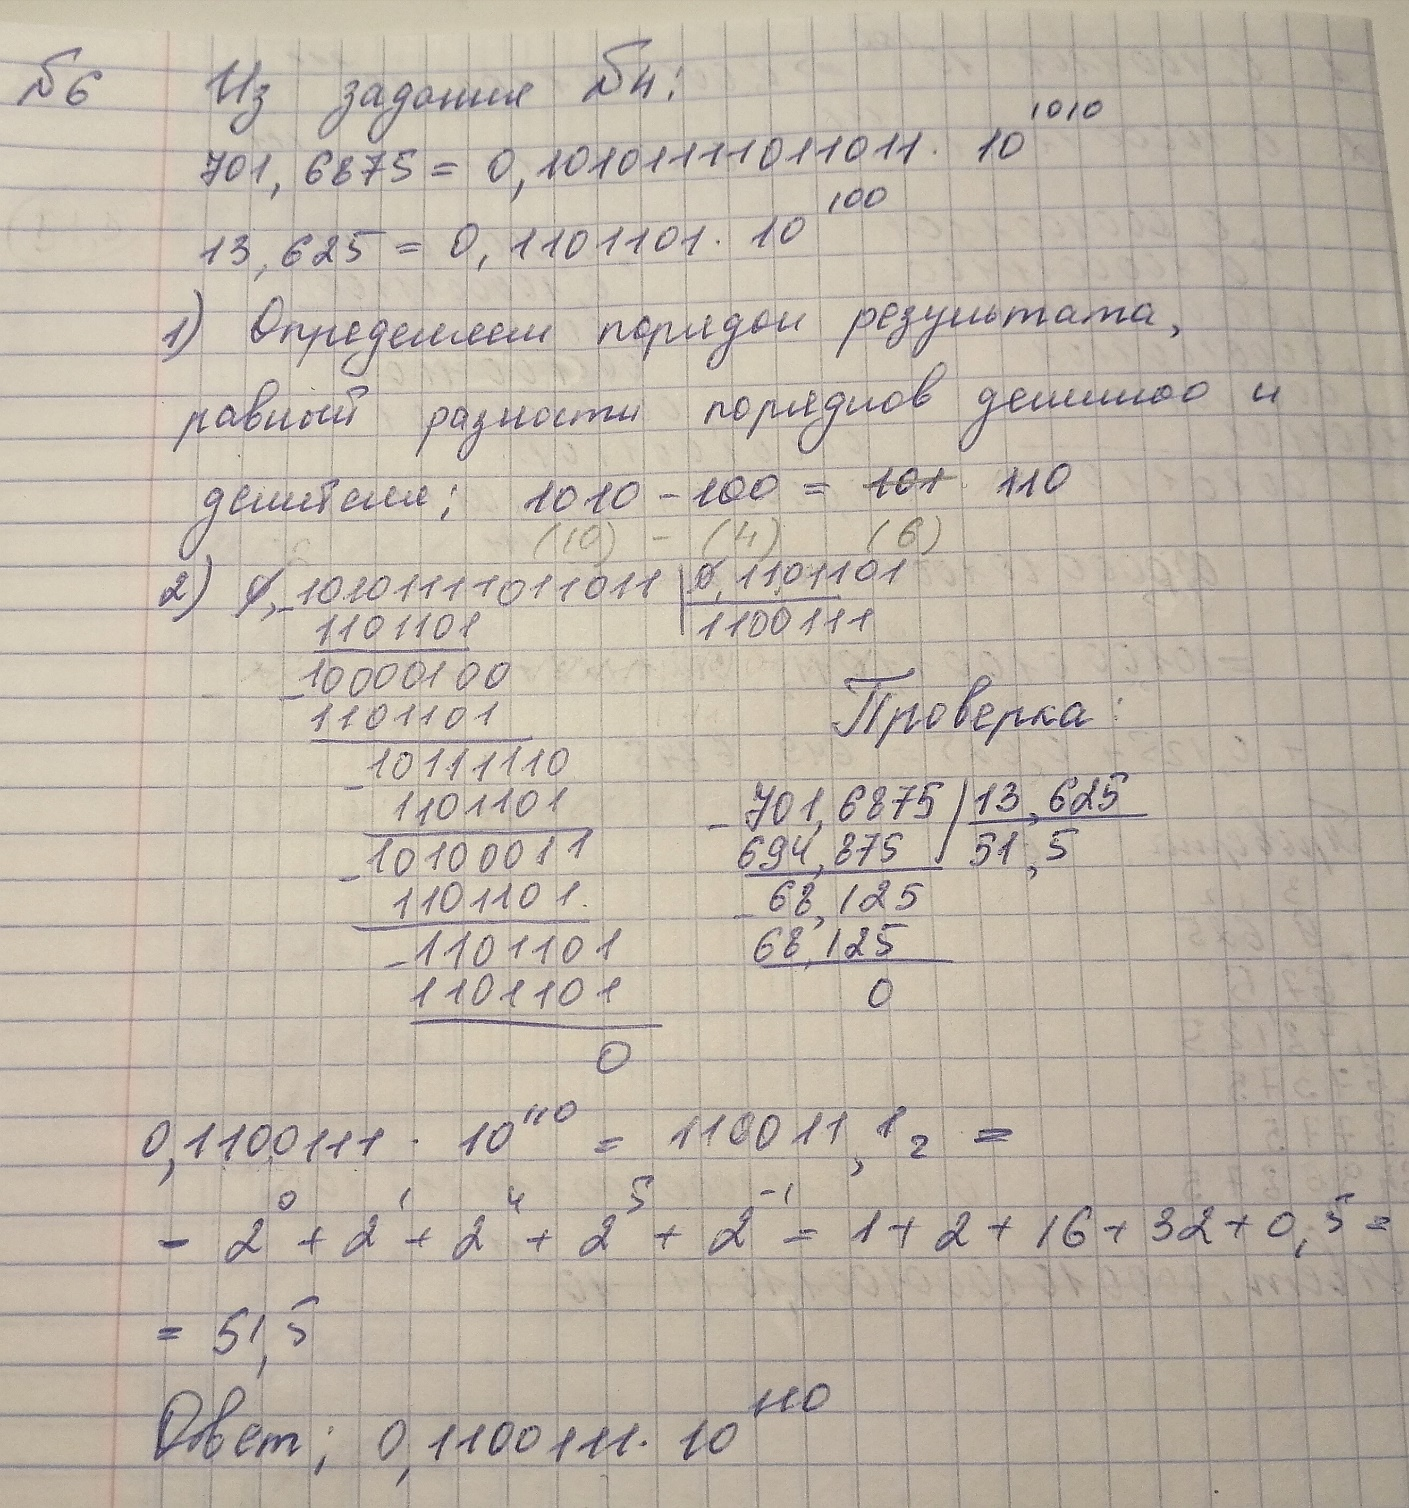 №6 Из задания №4:
701,6875 = 0,10101111011011 · 10^1010
13,625 = 0,1101101 · 10^100
1) Определяем порядок результата,
равный разности порядков делимого и
делителя; 1010 - 100 = 101 110
(10) - (4) (6)
2) 0,10101111011011 | 0,1101101
1101101 | 1100111
-10000100
1101101
-10111110
1101101
-10100011
1101101
-1101101
1101101
0
Проверка:
-701,6875 | 13,625
694,875 | 51,5
-68,125
68,125
0
0,1100111 · 10^110 = 110011,1₂ =
= 2^0 + 2^1 + 2^4 + 2^5 + 2^-1 = 1 + 2 + 16 + 32 + 0,5 =
= 51,5
Ответ; 0,1100111 · 10^110